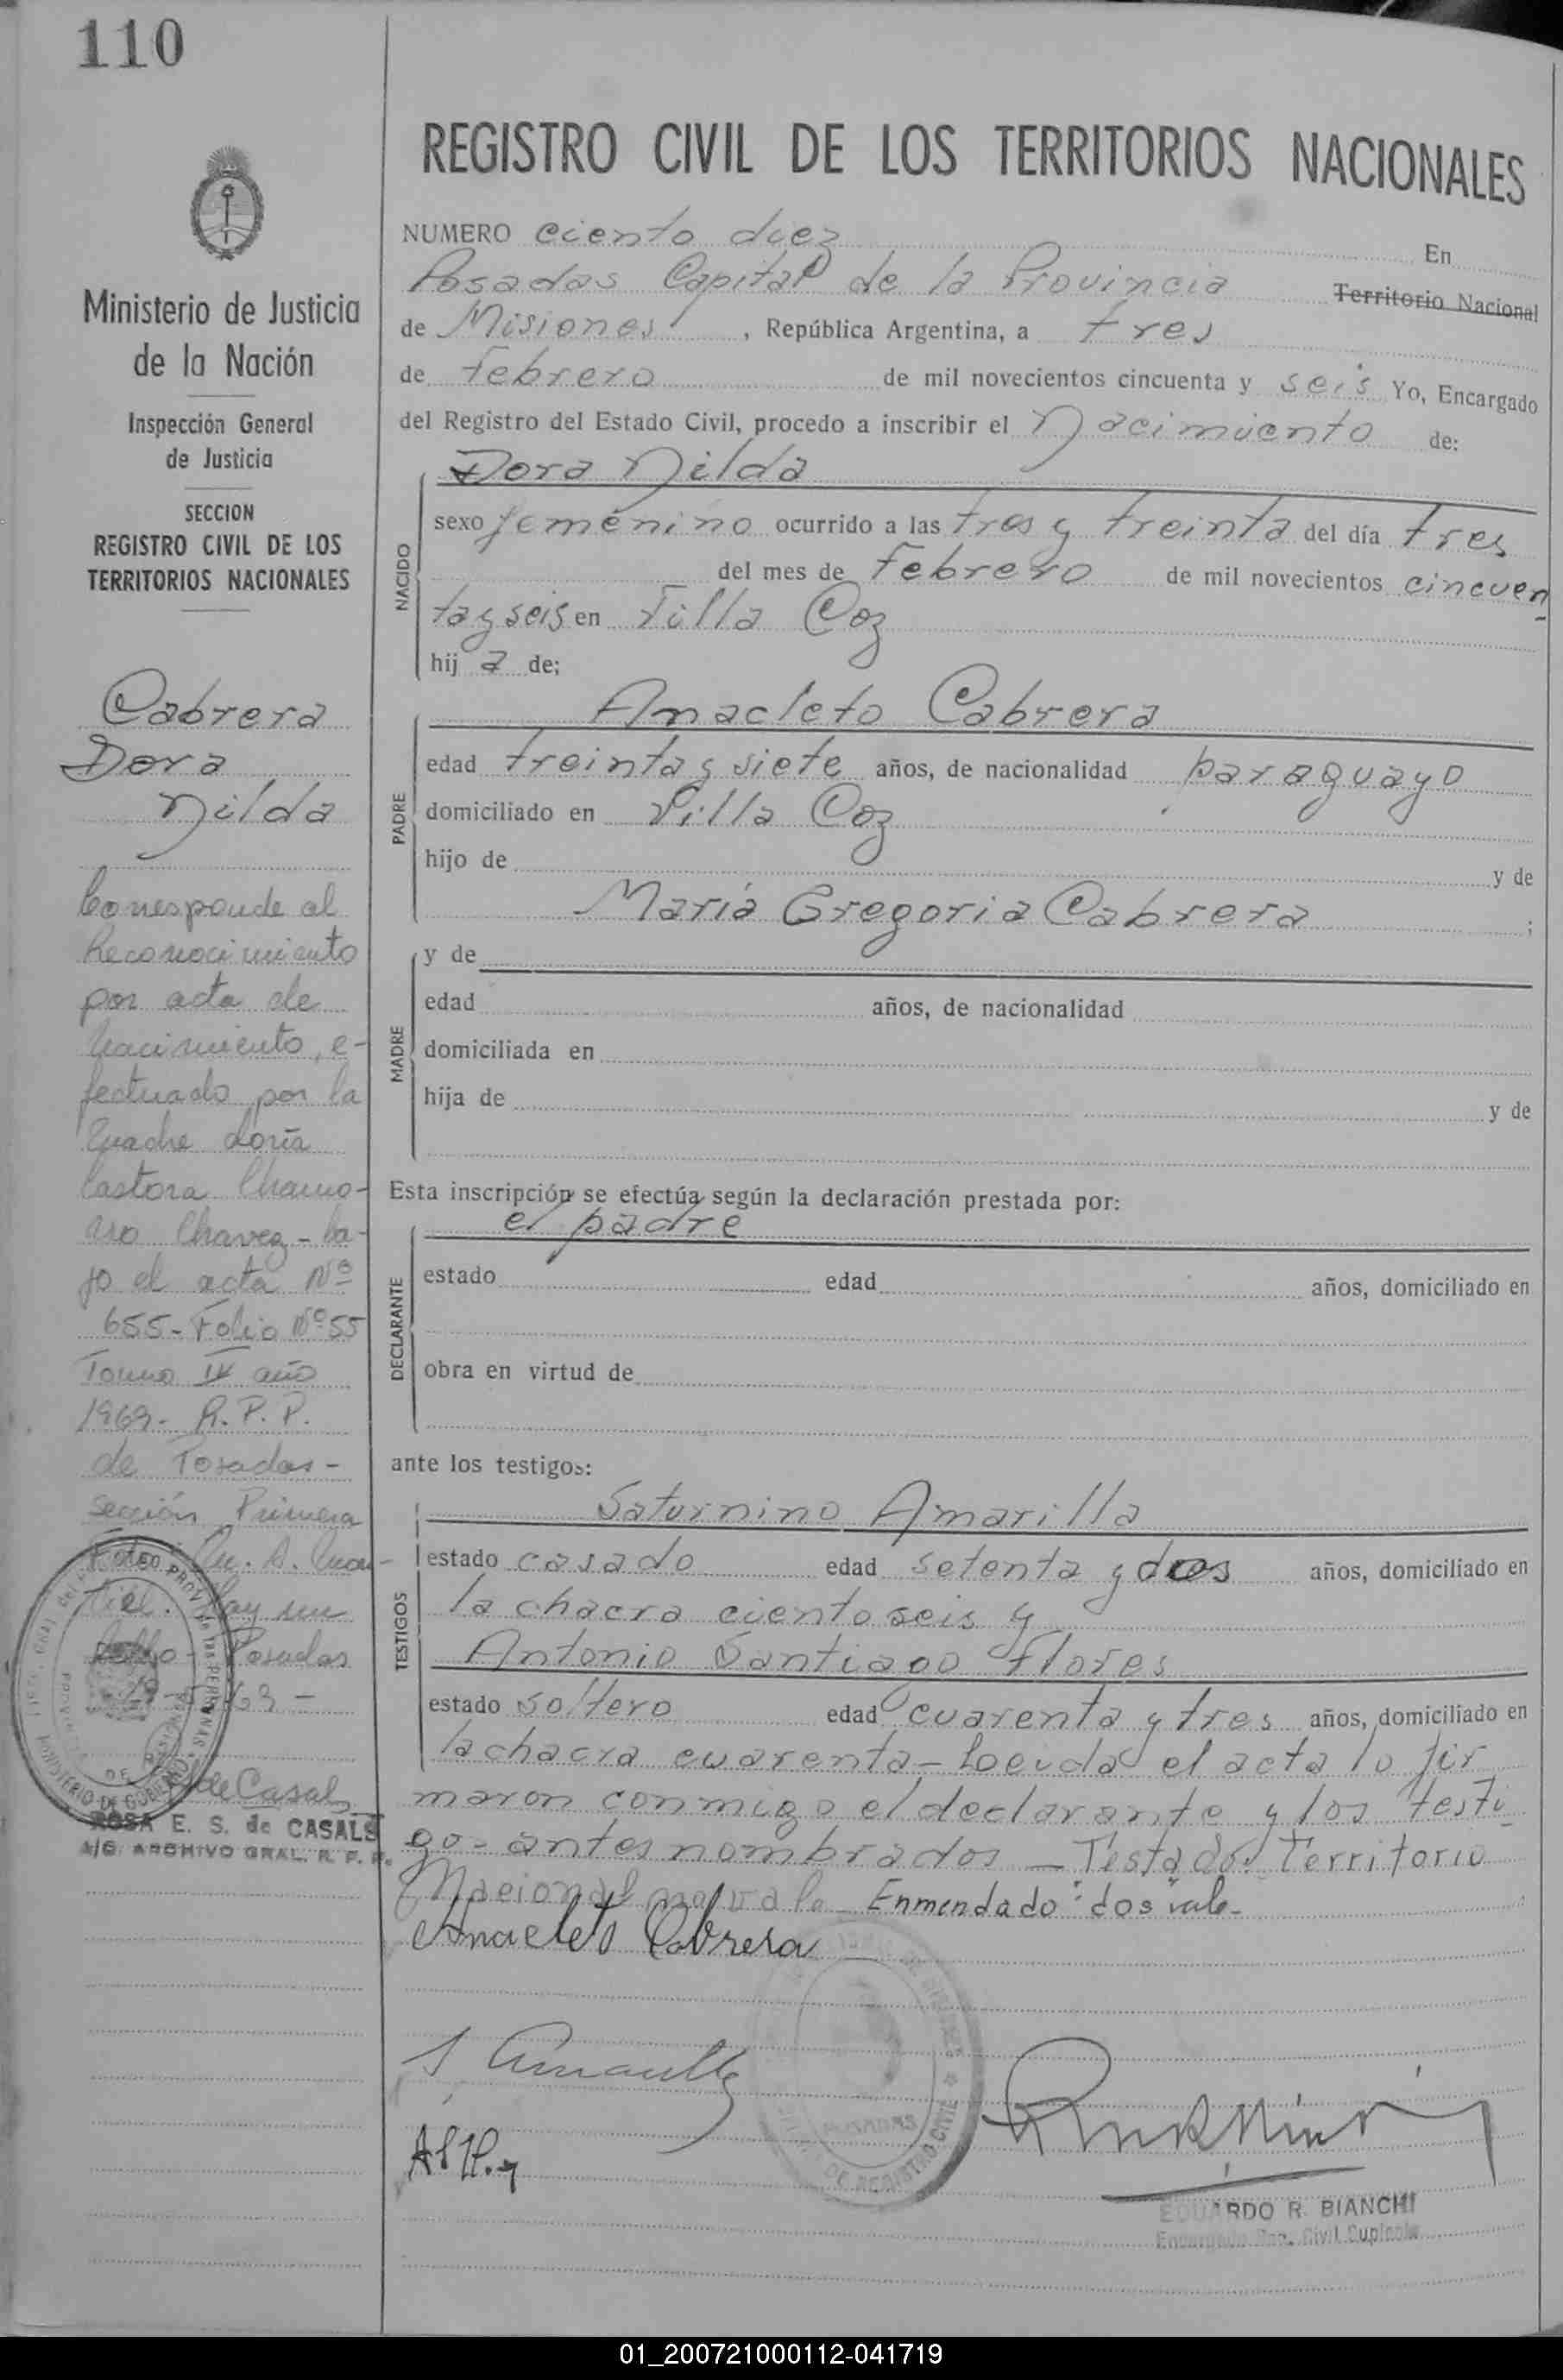 110
Ministerio de Justicia
de la Nación
Inspección General
de Justicia
SECCION
REGISTRO CIVIL DE LOS
TERRITORIOS NACIONALES
Cabrera
Dora
Nilda
Corresponde al
Reconocimiento
por acta de
Nacimiento, e-
fectuado por la
Madre doña
Pastora Chamo-
rro Chavez - ba-
jo el acta Nº
655 - Folio Nº 55
Tomo IV año
1969 - R. P. P.
de Posadas -
Sección Primera
Hay un
Sello - Posadas
de Casals
ROSA E. S. de CASALS
A/C. ARCHIVO GRAL. R. P. P.
REGISTRO CIVIL DE LOS TERRITORIOS NACIONALES
NUMERO ciento diez En
Posadas Capital de la Provincia Territorio Nacional
de Misiones, República Argentina, a tres
de Febrero de mil novecientos cincuenta y seis Yo, Encargado
del Registro del Estado Civil, procedo a inscribir el Nacimiento de:
NACIDO
Dora Nilda
sexo femenino ocurrido a las tres y treinta del día tres
del mes de Febrero de mil novecientos cincuen
ta y seis en Villa Coz
hij a de;
PADRE
Anacleto Cabrera
edad treinta y siete años, de nacionalidad paraguayo
domiciliado en Villa Coz
hijo de y de
María Gregoria Cabrera ;
MADRE
y de
edad años, de nacionalidad
domiciliada en
hija de y de
Esta inscripción se efectúa según la declaración prestada por:
DECLARANTE
el padre
estado edad años, domiciliado en
obra en virtud de
ante los testigos:
TESTIGOS
Saturnino Amarilla
estado casado edad setenta y dos años, domiciliado en
la chacra ciento seis y
Antonio Santiago Flores
estado soltero edad cuarenta y tres años, domiciliado en
la chacra cuarenta - Loeida el acta lo fir
maron conmigo el declarante y los testi
gos antes nombrados - Testado: Territorio
Nacional no vale - Enmendado: "dos" vale -
Anacleto Cabrera
S Amarilla
POSADAS
DE REGISTRO CIVIL
EDUARDO R. BIANCHI
Encargado Reg. Civil Suplente
01_200721000112-041719